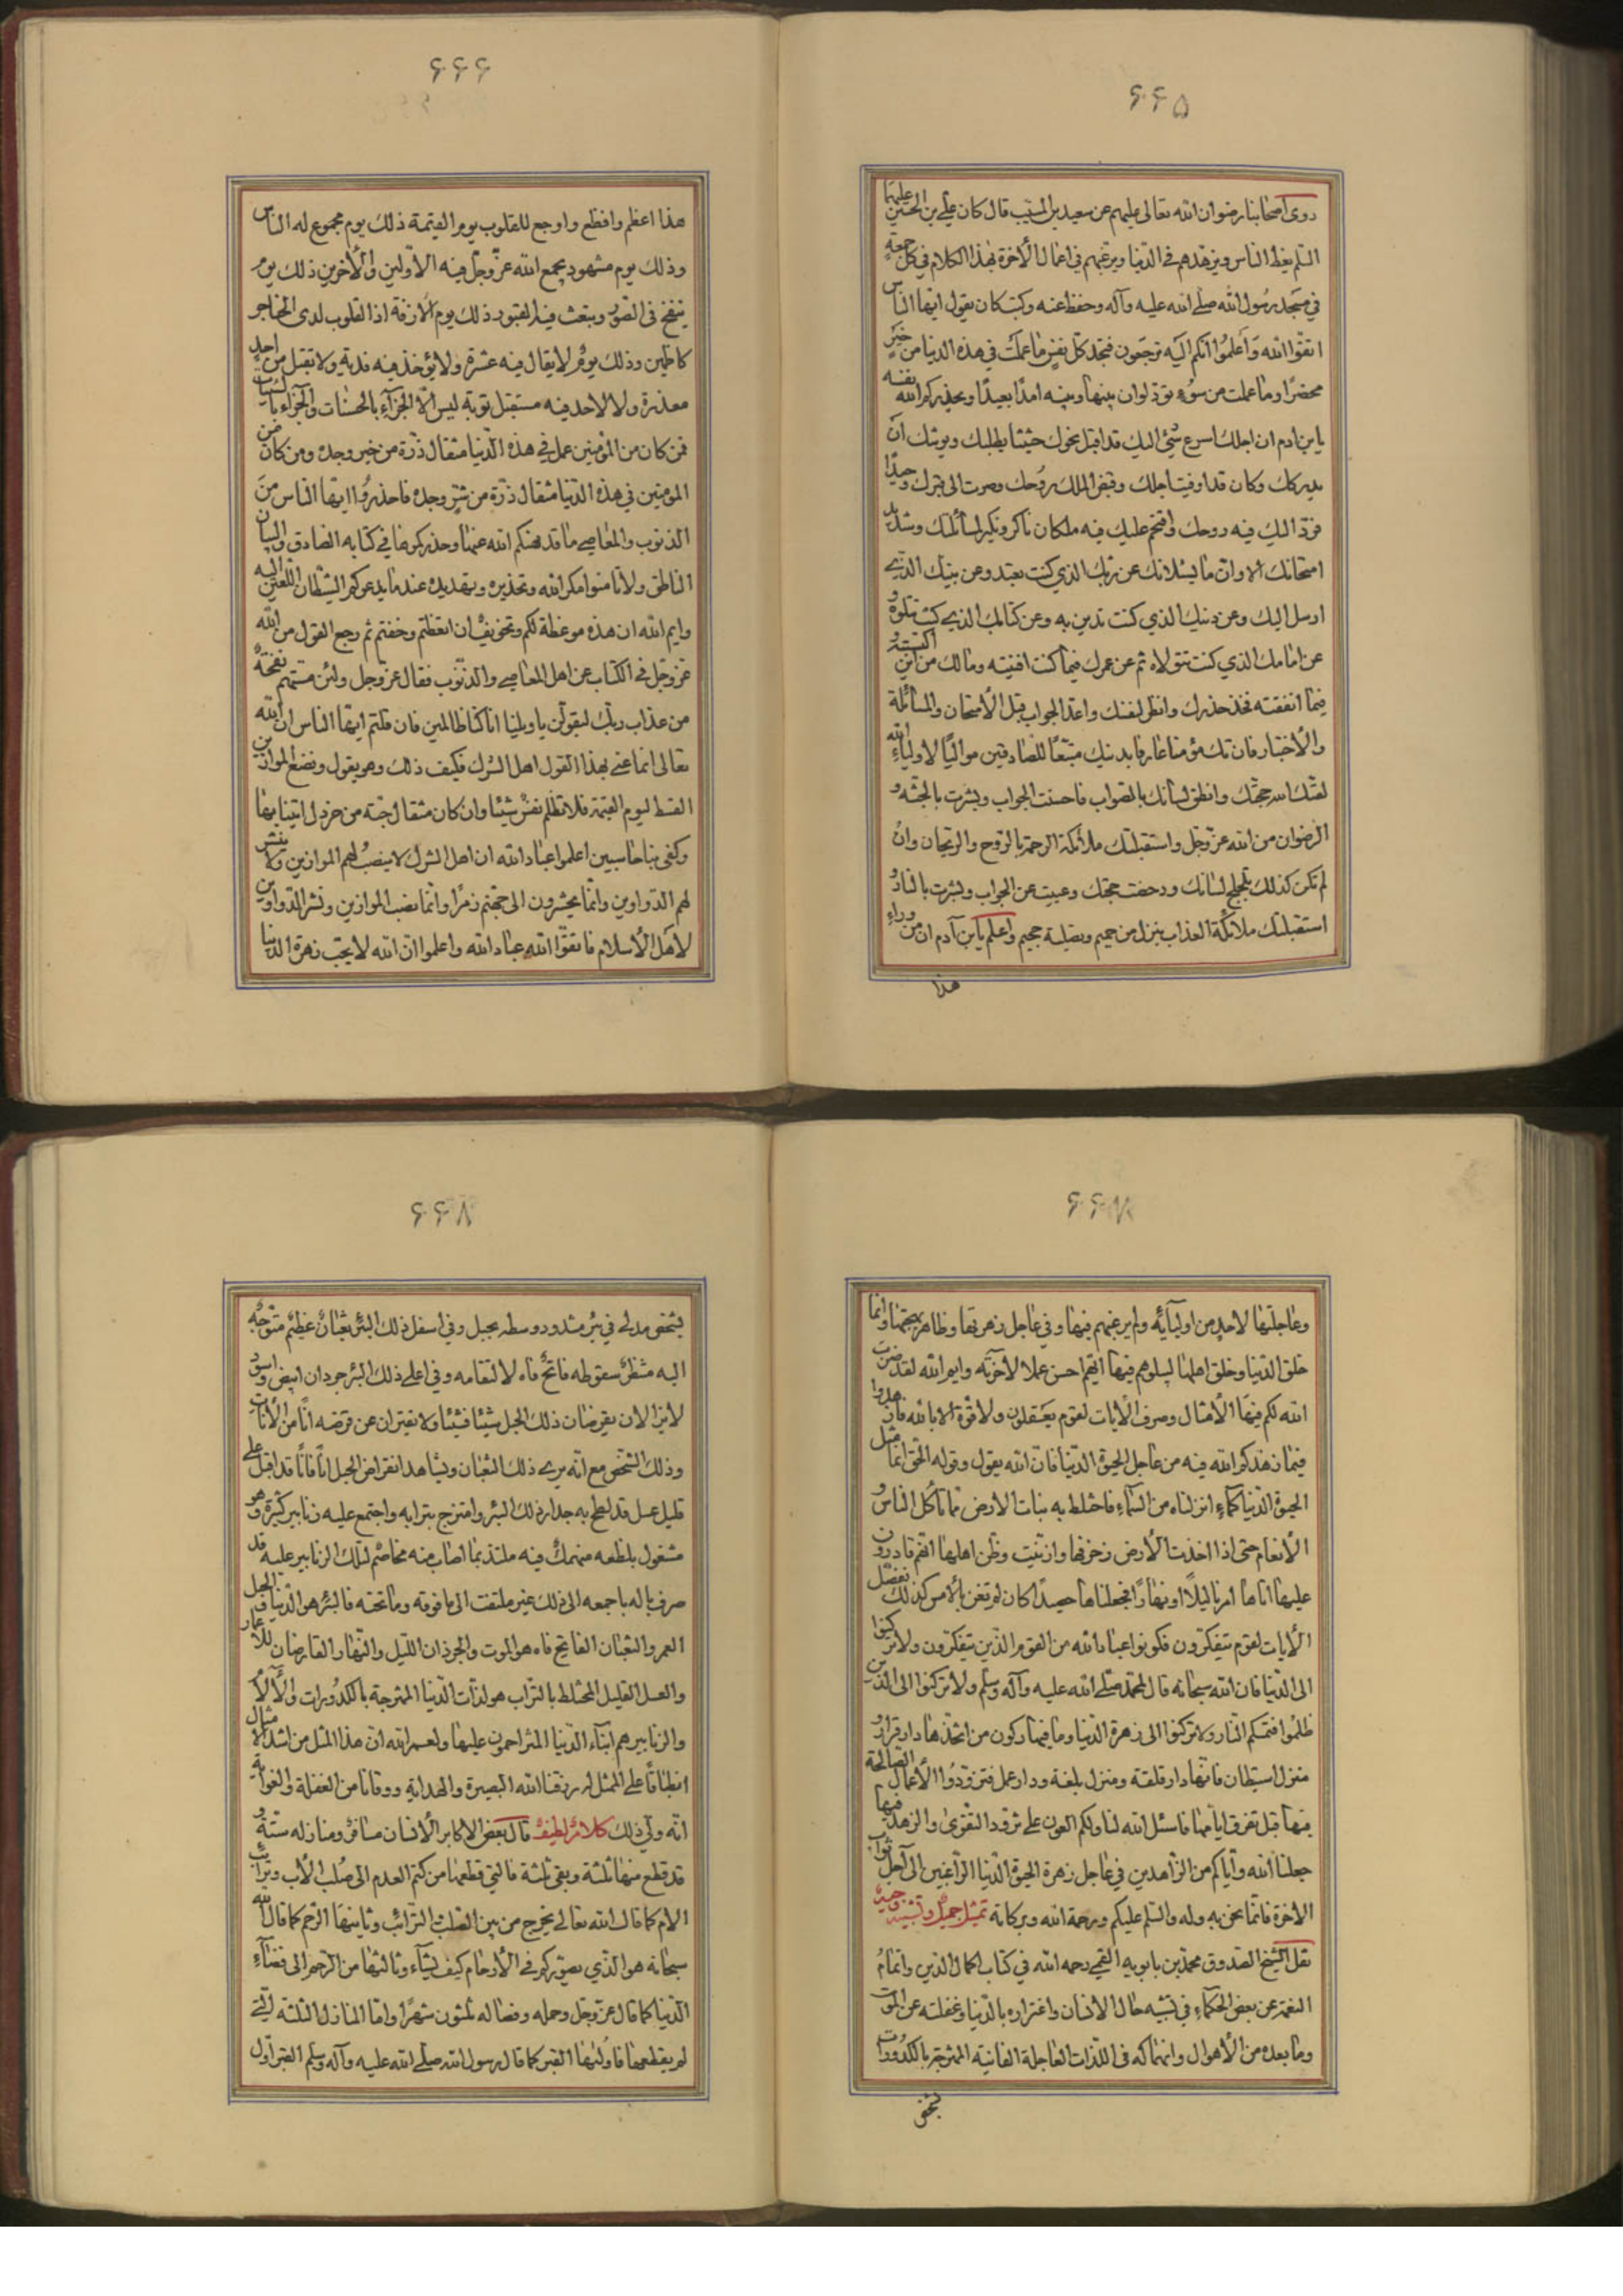 ۶۶۵
روى اصحابنا رضوان الله تعالى عليهم عن سعيد بن المسيب قال كان علي بن الحسين عليهما
السلم يعظ الناس ويزهدهم في الدنيا ويرغبهم في اعمال الآخرة بهذا الكلام في كل جمعة
في مسجد رسول الله صلى الله عليه وآله وحفظ عنه وكتب كان يقول ايها الناس
اتقوا الله واعلموا انكم اليه ترجعون فتجد كل نفس ما عملت في هذه الدنيا من خير
محضرا وما عملت من سوء تود لو ان بينها وبينه امدا بعيدا ويحذركم الله نفسه
يا بن ادم ان اجلك اسرع شئ اليك قد اقبل نحوك حثيثا يطلبك ويوشك ان
يدركك وكان قد اوفيت اجلك وقبض الملك روحك وصرت الى قبرك وحيدا
فرد اليك فيه روحك واقتحم عليك فيه ملكان ناكر ونكير لمسائلتك وشديد
امتحانك الا وان ما يسئلانك عن ربك الذي كنت تعبد وعن نبيك الذي
ارسل اليك وعن دينك الذي كنت تدين به وعن كتابك الذي كنت تتلوه و
عن امامك الذي كنت تتولاه ثم عن عمرك فيما كنت افنيته ومالك من اين اكتسبته و
فيما انفقته فخذ حذرك وانظر لنفسك واعد الجواب قبل الامتحان والمسائلة
والاختبار فان تك مؤمنا عارفا بدينك متبعا للصادقين مواليا لاولياء الله
لقنك الله حجتك وانطق لسانك بالصواب فاحسنت الجواب وبشرت بالجنة و
الرضوان من الله عز وجل واستقبلتك ملائكة الرحمة بالروح والريحان وان
لم تكن كذلك تلجلج لسانك ودحضت حجتك وعييت عن الجواب وبشرت بالنار و
استقبلتك ملائكة العذاب بنزل من حميم وتصلية جحيم واعلم يابن آدم ان من وراء
هذا
۶۶۶
هذا اعظم وافظع واوجع للقلوب يوم القيمة ذلك يوم مجموع له الناس
وذلك يوم مشهود يجمع الله عز وجل فيه الاولين والآخرين ذلك يوم
ينفخ في الصور ويبعث فيه القبور ذلك يوم الآزفة اذا القلوب لدى الحناجر
كاظمين وذلك يوم لا يقال فيه عثرة ولا يؤخذ فيه فدية ولا تقبل من احد
معذرة ولا لاحد فيه مستقبل توبة ليس الا الجزاء بالحسنات والجزاء بالسيئات
فمن كان من المؤمنين عمل في هذه الدنيا مثقال ذرة من خير وجده ومن كان من
المؤمنين في هذه الدنيا مثقال ذرة من شر وجده فاحذروا ايها الناس من
الذنوب والمعاصي ما قد نهيكم الله عنها وحذركموها في كتابه الصادق والبيان
الناطق ولا تأمنوا مكر الله وتحذيره وتهديده عند ما يدعوكم الشيطان اللعين اليه
وايم الله ان هذه موعظة لكم وتخويف ان اتعظتم وخفتم ثم رجع القول من الله
عز وجل في الكتاب عن اهل المعاصي والذنوب فقال عز وجل ولئن مستهم نفحة
من عذاب ربك ليقولن يا ويلنا انا كنا ظالمين فان قلتم ايها الناس ان الله
تعالى انما عنى بهذا القول اهل الشرك فكيف ذلك وهو يقول ونضع الموازين
القسط ليوم القيمة فلا تظلم نفس شيئا وان كان مثقال حبة من خردل اتينا بها
وكفى بنا حاسبين اعلموا عباد الله ان اهل الشرك لا ينصب لهم الموازين ولا ينشر
لهم الدواوين وانما يحشرون الى جهنم زمرا وانما نصب الموازين ونشر الدواوين
لاهل الاسلام فاتقوا الله عباد الله واعلموا ان الله لا يحب زهرة الدنيا
۶۶۷
وعاجلتها لاحد من اوليائه ولم يرغبهم فيها وفي عاجل زهرتها وظاهر بهجتها وانما
خلق الدنيا وخلق اهلها ليبلوهم فيها ايهم احسن عملا لآخرته وايم الله لقد ضربت
الله لكم فيها الامثال وصرف الآيات لقوم يعقلون ولا قوة الا بالله فازهدوا
فيما زهدكم الله فيه من عاجل الحيوة الدنيا فان الله يقول وقوله الحق انما مثل
الحيوة الدنيا كماء انزلناه من السماء فاختلط به نبات الارض مما تأكل الناس و
الانعام حتى اذا اخذت الارض زخرفها وازينت وظن اهلها انهم قادرون
عليها اتاها امرنا ليلا او نهارا فجعلناها حصيدا كان لم تغن بالامس كذلك نفصل
الآيات لقوم يتفكرون فكونوا عباد الله من القوم الذين يتفكرون ولا تركنوا
الى الدنيا فان الله سبحانه قال لمحمد صلى الله عليه وآله وسلم ولا تركنوا الى الذين
ظلموا فتمسكم النار ولا تركنوا الى زهرة الدنيا وما فيها ركون من اتخذها دار قرار و
منزل استيطان فانها دار قلعة ومنزل بلغة ودار عمل فتزودوا الاعمال الصالحة
فيها قبل تفرق ايامها فاسئل الله لنا ولكم العون على تزود التقوى والزهد فيها
جعلنا الله واياكم من الزاهدين في عاجل زهرة الحيوة الدنيا الراغبين الى آجل ثواب
الاخرة فانما نحن به وله والسلم عليكم ورحمة الله وبركاته تمثيل جميل وتشبيه وجيه
نقل الشيخ الصدوق محمد بن بابويه القمي رحمه الله في كتاب اكمال الدين واتمام
النعمة عن بعض الحكماء في تشبيه حال الانسان واغتراره بالدنيا وغفلته عن الموت
وما بعده من الاهوال وانهماكه في اللذات العاجلة الفانية الممتزجة بالكدورات
بشخص
۶۶۸
بشخص مدلى في بئر مشدود وسطه بحبل وفي اسفل ذلك البئر ثعبان عظيم متوجه
اليه منتظر سقوطه فاتح فاه لالتقامه وفي اعلى ذلك البئر جرذان ابيض واسود
لا يزالان يقرضان ذلك الحبل شيئا فشيئا ولا يفتران عن قرضه انا من الانات
وذلك الشخص مع انه يرى ذلك الثعبان ويشاهد انقراض الحبل انا فانا قد اقبل على
قليل عسل قد لطخ به جدار ذلك البئر وامتزج بترابه واجتمع عليه زنابير كثيرة وهو
مشغول بلطعه منهمك فيه ملتذ بما اصاب منه مخاصم لتلك الزنابير عليه قد
صرف باله باجمعه الى ذلك غير ملتفت الى ما فوقه وما تحته فالبئر هو الدنيا والحبل
العمر والثعبان الفاتح فاه هو الموت والجرذان الليل والنهار القارضان للاعمار
والعسل القليل المختلط بالتراب هو لذات الدنيا الممتزجة بالكدورات والآلام
والزنابير هم ابناء الدنيا المتزاحمون عليها ولعمر الله ان هذا المثل من اشد الامثال
انطباقا على الممثل له رزقنا الله البصيرة والهداية ووقانا من الغفلة والغواية
انه ولي ذلك كلام لطيف قال بعض الاكابر الانسان مسافر ومنازله ستة و
قد قطع منها ثلثة وبقي ثلثة فالتي قطعها من كتم العدم الى صلب الاب وترائب
الام كما قال الله تعالى يخرج من بين الصلب والترائب وثانيها الرحم كما قال الله
سبحانه هو الذي يصوركم في الارحام كيف يشاء وثالثها من الرحم الى فضاء
الدنيا كما قال عز وجل وحمله وفصاله ثلثون شهرا واما المنازل الثلثة التي
لم يقطعها فاولها القبر كما قال رسول الله صلى الله عليه وآله وسلم القبر اول